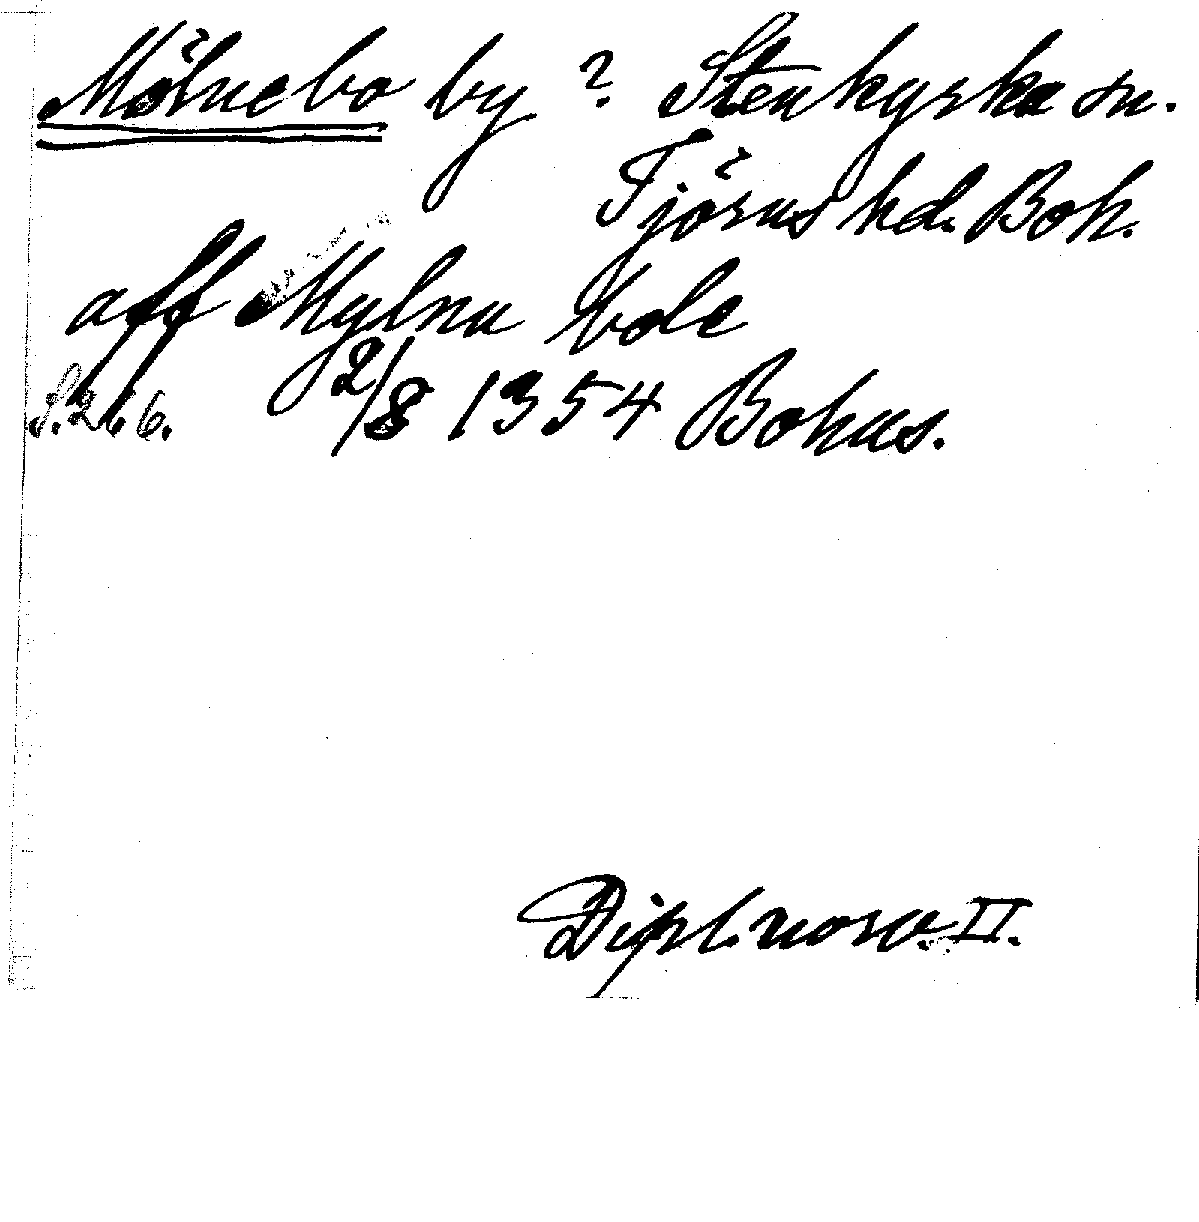 Mölnebo by ? Stenkyrka sn.
Tjörns hd. Boh.
aff Mylna bode
S. 216. 2/8 1354 Bohus.
Dipl. norv. II.